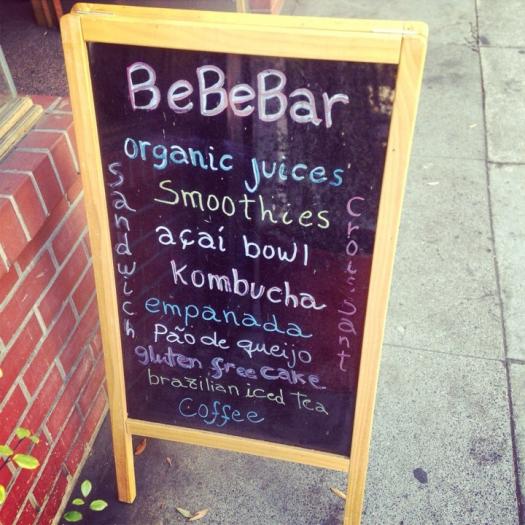 BeBeBar
organic juices
Smoothies
açaí bowl
Kombucha
empanada
Pão de queijo
gluten free cake
brazilian iced Tea
Coffee
Sandwich
Croissant